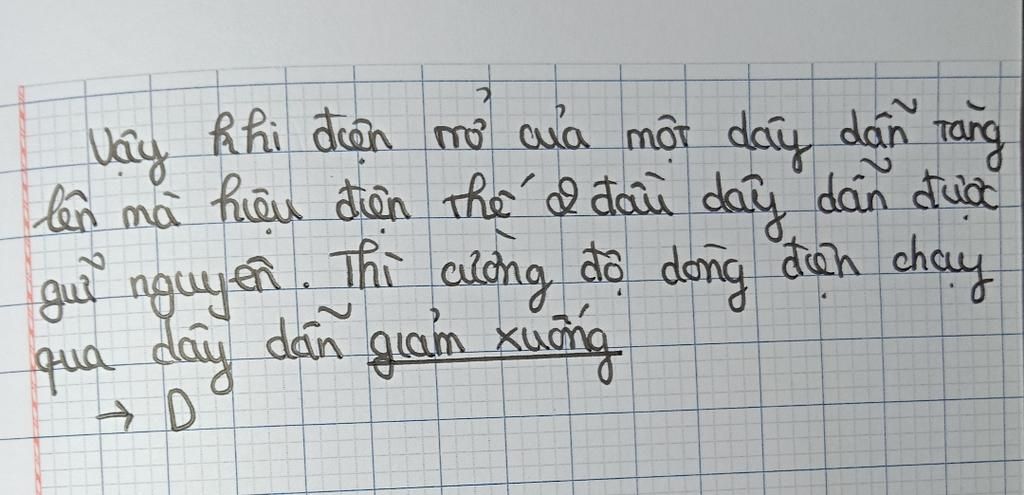 Vậy khi điện mở của một dây dẫn tăng
lên mà hiệu điện thế 2 đầu dây dẫn được
giữ nguyên. Thì cường độ dòng điện chạy
qua dây dẫn giảm xuống
→ D